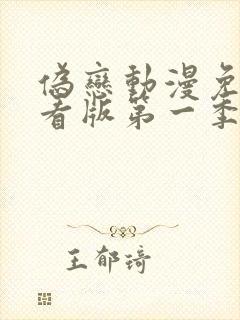 偽戀動漫免
看版第一季
王郁琦